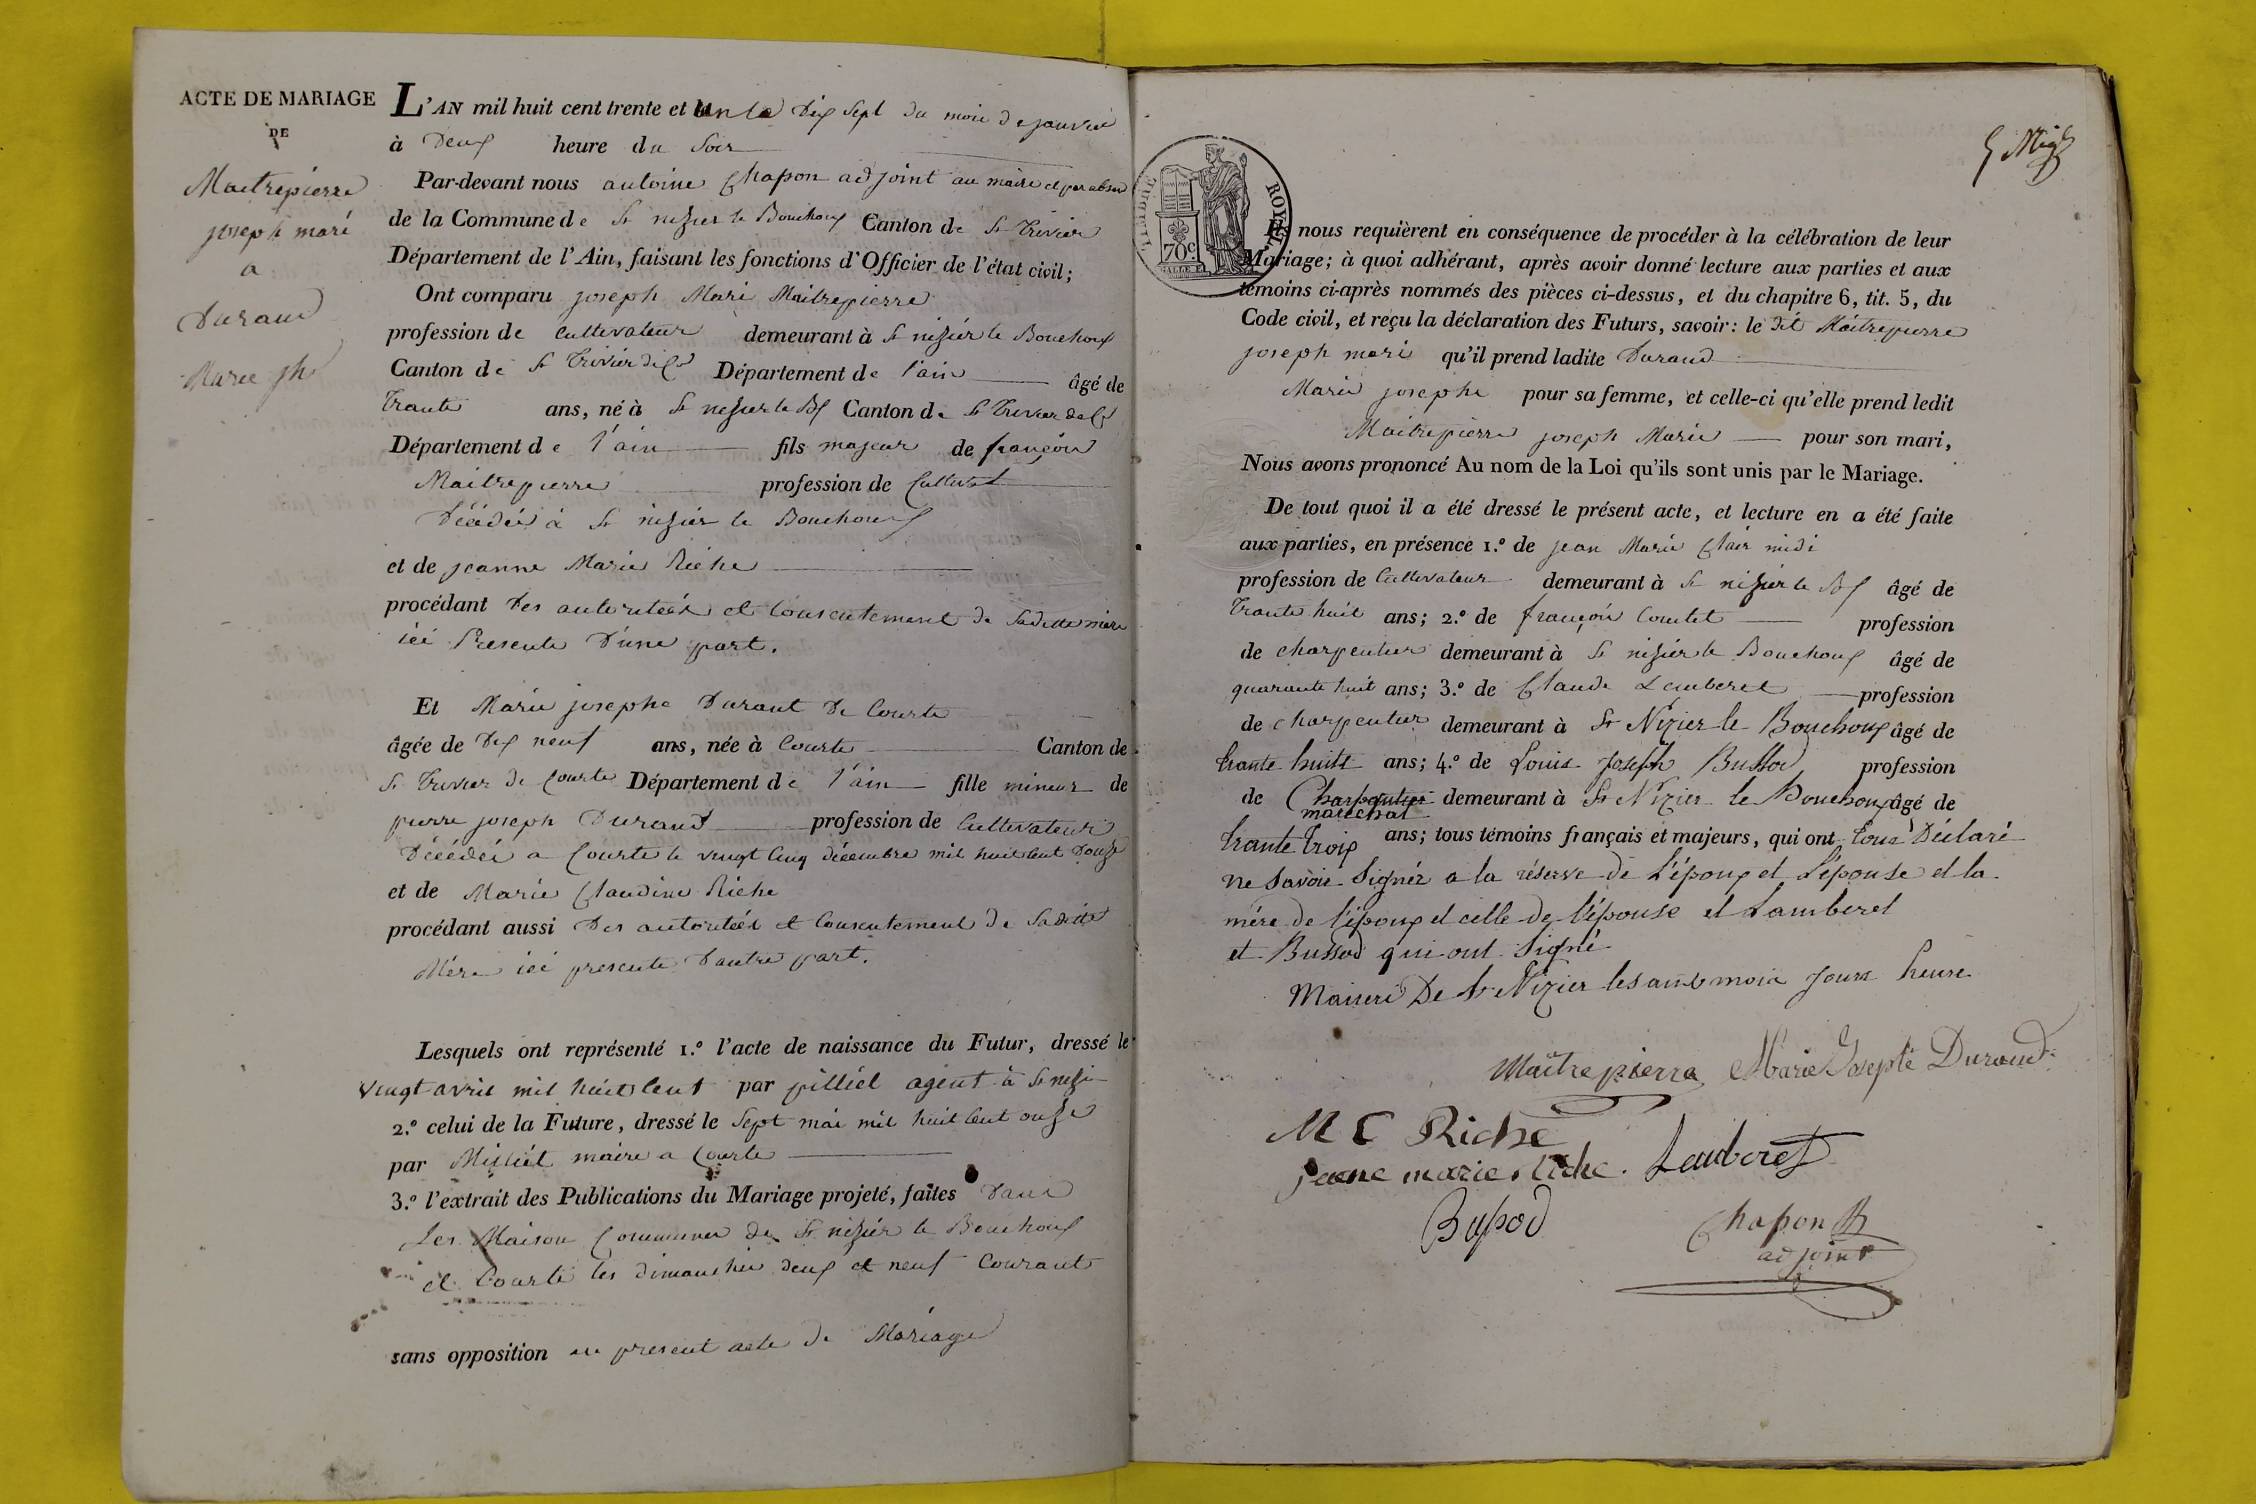 ACTE DE MARIAGE
DE
Maitrepierre
joseph mari
a
Durand
Marie jhe
L'AN mil huit cent trente et un le Dix Sept du mois de janvié
à Deux heure du Soir
Par-devant nous antoine Chapon adjoint au maire et par absen
de la Commune de St nizier le Bouchoux Canton de St Trivier
Département de l'Ain, faisant les fonctions d'Officier de l'état civil;
Ont comparu joseph Mari Maitrepierre
profession de Cultivateur demeurant à St nizier le Bouchoux
Canton de St Trivier de Cs Département de l'ain âgé de
Trante ans, né à St nizier le Bx Canton de St Trivier de Cs
Département de l'ain fils majeur de françois
Maitrepierre profession de Cultivat
Décédés à St nizier le Bouchoux
et de jeanne Marie Riche
procédant Des autoritées et Consentement de Saditte mère
ici Presente D'une part.
Et Marie josephe Durant De Courte
âgée de Dix neuf ans, née à Courte Canton de
St Trivier de Courte Département de l'ain fille mineur de
pierre joseph Durand profession de Cultivateur
Décédéé a Courte le vingt Cinq décembre mil huit Cent Douze
et de Marie Claudine Riche
procédant aussi Des autoritées et Consentement de Sadite
Mère ici presente D'autre part.
Lesquels ont représenté 1.º l'acte de naissance du Futur, dressé le
vingt avril mil huit Cent par pilliet agent à St nizi
2.º celui de la Future, dressé le Sept mai mil huit Cent onze
par Milliet maire a Courte
3.º l'extrait des Publications du Mariage projeté, faites Dans
Les Maison Communes de St nizier le Bouchoux
et Courte les dimanches deux et neuf Courant
sans opposition au present acte de Mariage
TIMBRE ROYAL
70c.
Et nous requièrent en conséquence de procéder à la célébration de leur
Mariage; à quoi adhérant, après avoir donné lecture aux parties et aux
témoins ci-après nommés des pièces ci-dessus, et du chapitre 6, tit. 5, du
Code civil, et reçu la déclaration des Futurs, savoir: le dit Maitrepierre
joseph mari qu'il prend ladite Durand
Marie josephe pour sa femme, et celle-ci qu'elle prend ledit
Maitrepierre joseph Marie pour son mari,
Nous avons prononcé Au nom de la Loi qu'ils sont unis par le Mariage.
De tout quoi il a été dressé le présent acte, et lecture en a été faite
aux parties, en présence 1.º de jean Marie Clair midi
profession de Cultivateur demeurant à St nizier le Bx âgé de
Trante huit ans; 2.º de françois Comtet profession
de charpentier demeurant à St nizier le Bouchoux âgé de
quarante huit ans; 3.º de Claude Lamberet profession
de charpentier demeurant à St Nizier le Bouchoux âgé de
trante huitt ans; 4.º de Louis Joseph Bussod profession
de Charpentier demeurant à St Nizier le Bouchoux âgé de
marechal
trante trois ans; tous témoins français et majeurs, qui ont tous Déclaré
ne Savoir Signér a la réserve de L'époux et L'épouse et la
mére de l'époux et celle de l'épouse et Lamberet
et Bussod qui ont Signé
Mairerie De St Nizier les ans mois Jours heure
Maîtrepierre Marie Josepte Durand
M C Riche
jeane marie riche. Lamberet
Bussod Chapon
adjoint